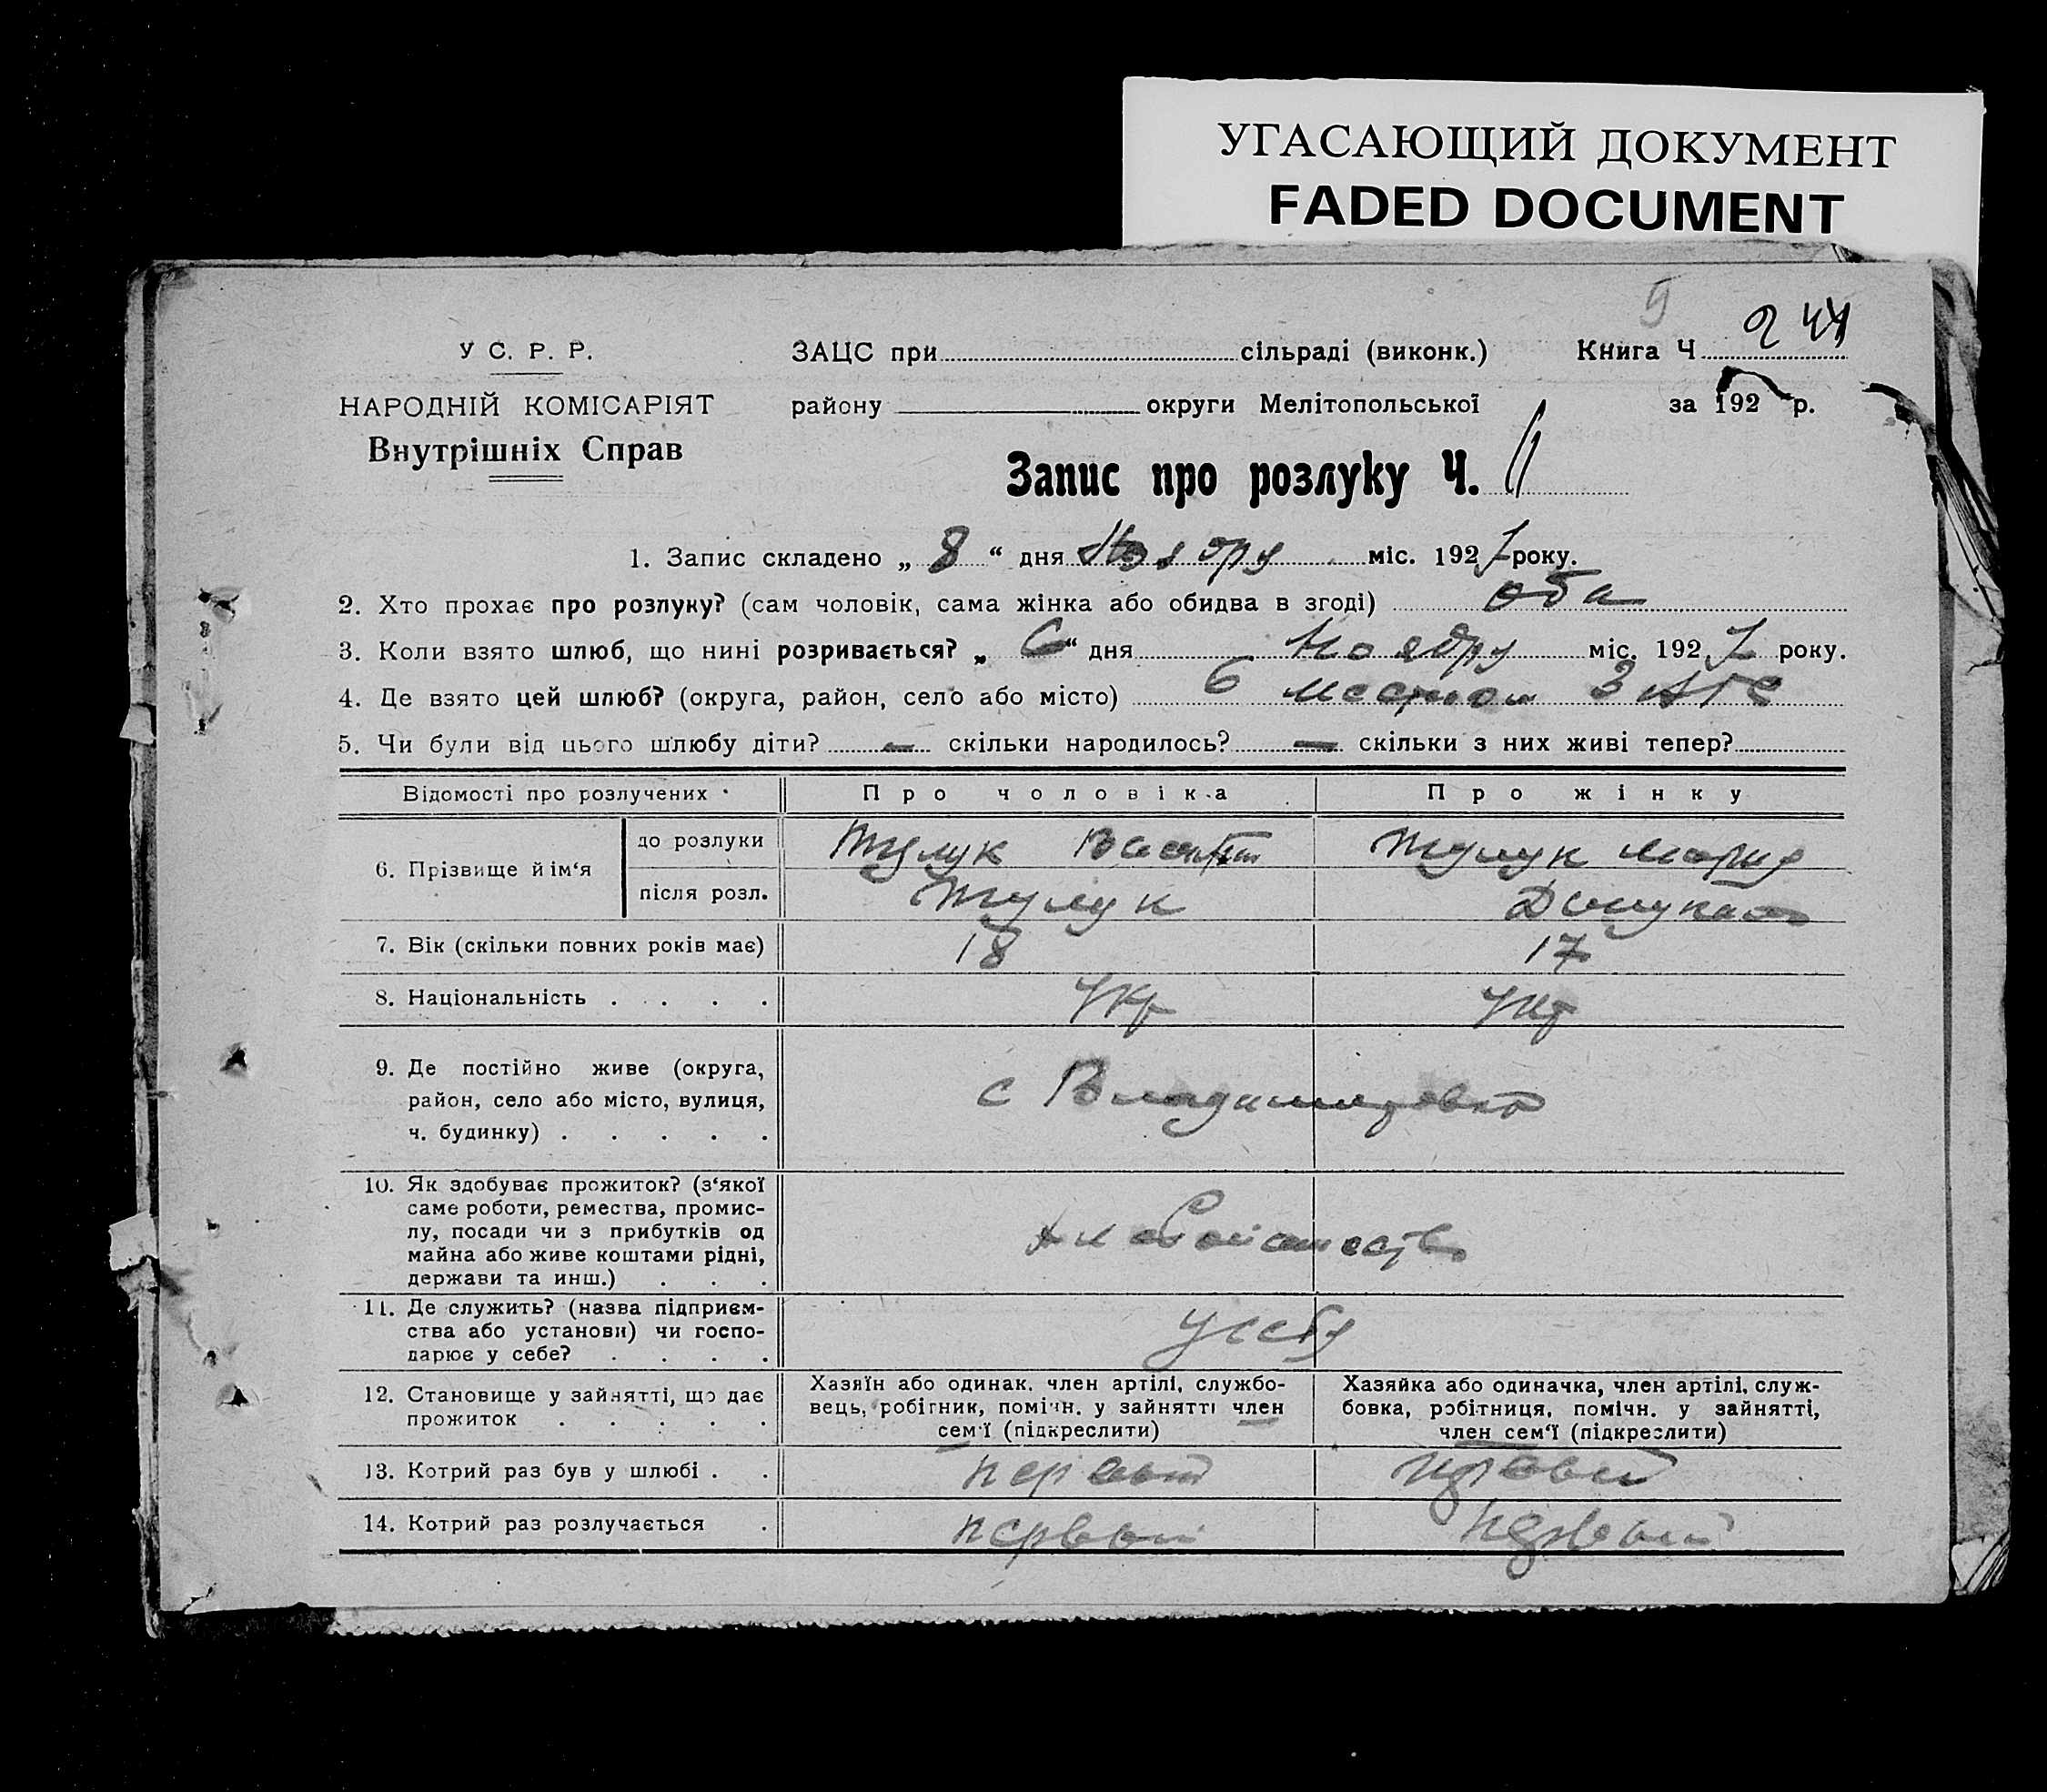 УГАСАЮЩИЙ ДОКУМЕНТ
FADED DOCUMENT
У С. Р. Р.
НАРОДНІЙ КОМІСАРІЯТ
Внутрішніх Справ
ЗАЦС при сільраді (виконк.) Книга Ч 244
району округи Мелітопольської за 192 р.
Запис про розлуку Ч. 11
1. Запис складено „ 8 “ дня Ноября міс. 1927 року.
2. Хто прохає про розлуку? (сам чоловік, сама жінка або обидва в згоді) оба
3. Коли взято шлюб, що нині розривається? „ 6 “ дня Ноября міс. 1927 року.
4. Де взято цей шлюб? (округа, район, село або місто) в местном ЗАГСе
5. Чи були від цього шлюбу діти? — скільки народилось? — скільки з них живі тепер?
Відомості про розлучених Про чоловіка Про жінку
6. Прізвище й ім‘я до розлуки Тулук Тулук Мария
після розл. Тулук
7. Вік (скільки повних років має) 18 17
8. Національність . . . . Укр Укр
9. Де постійно живе (округа,
район, село або місто, вулиця,
ч. будинку) . . . . .
с Владимировка
10. Як здобуває прожиток? (з‘якої
саме роботи, ремества, промис-
лу, посади чи з прибутків од
майна або живе коштами рідні,
держави та инш.) . . .
хлебопашество
11. Де служить? (назва підприєм-
ства або установи) чи госпо-
дарює у себе? . . . .
у себя
12. Становище у зайнятті, що дає
прожиток . . . . .
Хазяїн або одинак. член артілі, службо-
вець, робітник, помічн. у зайнятті член
сем‘ї (підкреслити)
Хазяйка або одиначка, член артілі, служ-
бовка, робітниця, помічн. у зайнятті,
член сем‘ї (підкреслити)
13. Котрий раз був у шлюбі . . первый первый
14. Котрий раз розлучається . первый первый